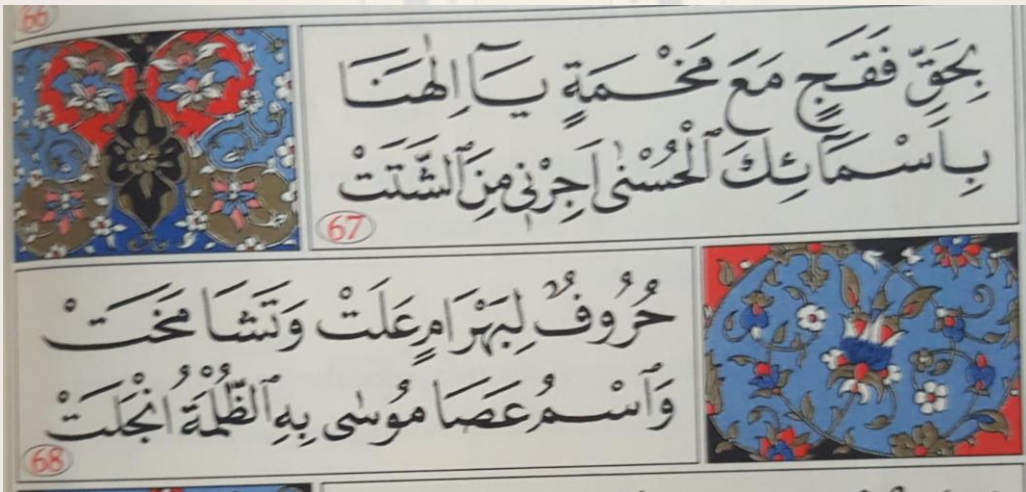 66
بِحَقِّ فَقَجٍ مَعَ مَخْمَةٍ يَٓا اِلٰهَنَا
بِاَسْمَٓائِكَ ٱلْحُسْنٰى اَجِرْنٖى مِنَ ٱلشَّتَتْ
67
حُرُوفٌ لِبَهْرَامٍ عَلَتْ وَتَشَامَخَتْ
وَٱسْمُ عَصَا مُوسٰى بِهِ ٱلظُّلْمَةُ انْجَلَتْ
68